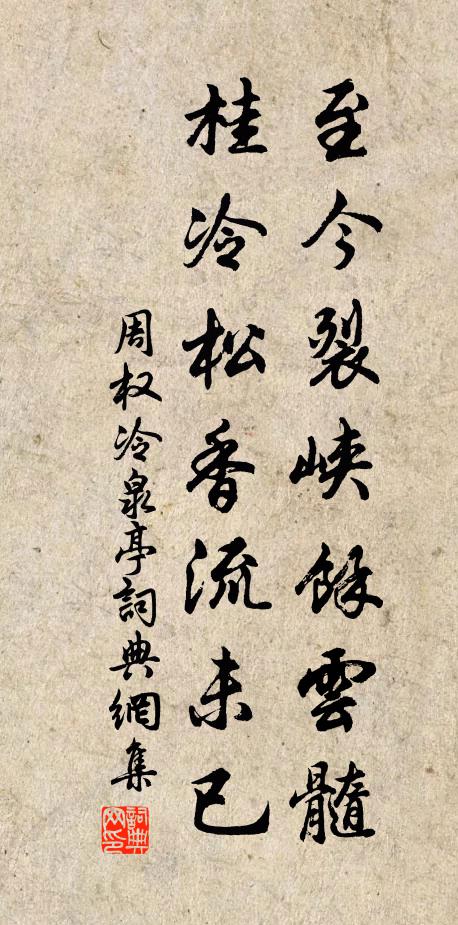 至今裂峽餘雲髓
桂冷松香流未已
周权冷泉亭詞典網集
詞典網印